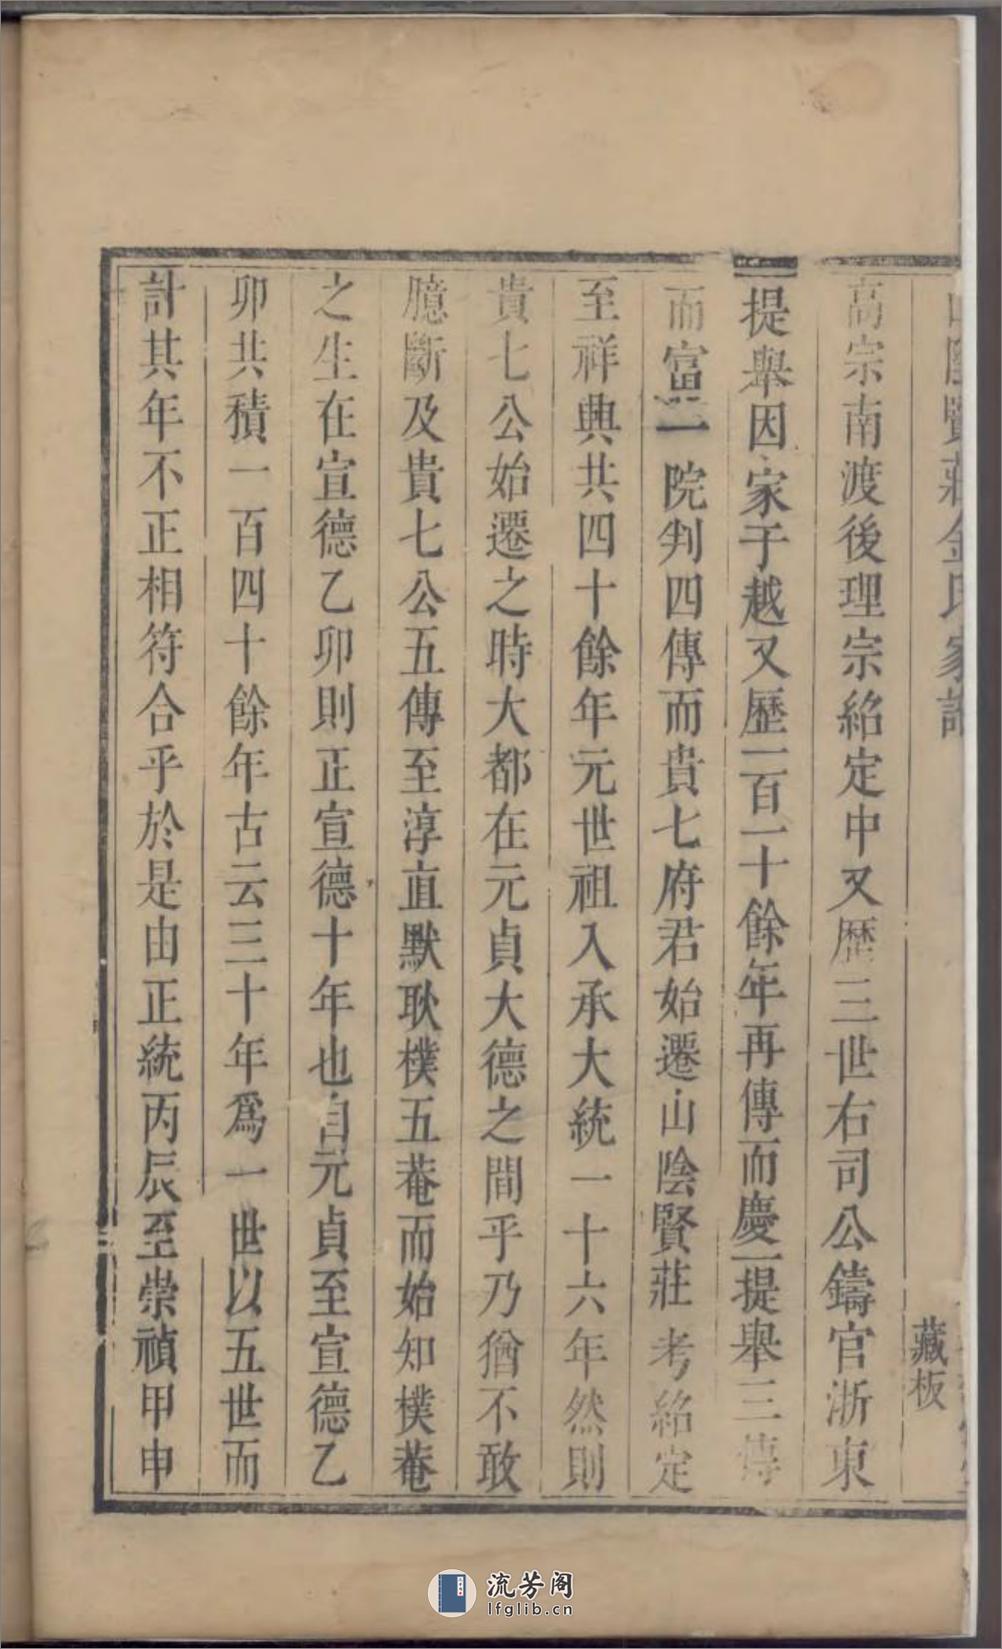 山陰賢莊金氏家譜
藏板
高宗南渡後理宗紹定中又歷三世右司公鑄官浙東
提舉因家于越又歷一百一十餘年再傳而慶一提舉三傳
而富一院判四傳而貴七府君始遷山陰賢莊考紹定
至祥興共四十餘年元世祖入承大統一十六年然則
貴七公始遷之時大都在元貞大德之間乎乃猶不敢
臆斷及貴七公五傳至淳直默耿樸五菴而始知樸菴
之生在宣德乙卯則正宣德十年也自元貞至宣德乙
卯共積一百四十餘年古云三十年爲一世以五世而
計其年不正相符合乎於是由正統丙辰至崇禎甲申
流芳阁
lfglib.cn